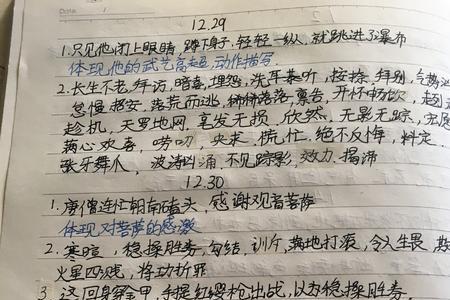 12.29
1.只见他闭上眼睛，蹲下身子，轻轻一纵，就跳进了瀑布
体现他的武艺高超，动作描写.
2.长生不老，拜访，暗喜，埋怨，洗耳恭听，按捺，拜别，
怠慢，招安，落荒而逃，禀告，开怀畅饮，
趁机，天罗地网，毫发无损，欣然，无影无踪，
满心欢喜，唠叨，央求，慌忙，绝不反悔，料定，
张牙舞爪，波涛汹涌，不见踪影，效力，揭谛
12.30
1.唐僧连忙朝南磕头，感谢观音菩萨
体现对菩萨的感激
2.寒暄，稳操胜券，勾结，训斥，满地打滚，令人生畏，
火星四溅，将功折罪
3 这回身穿金甲，手提红缨枪出战，以为稳操胜券，